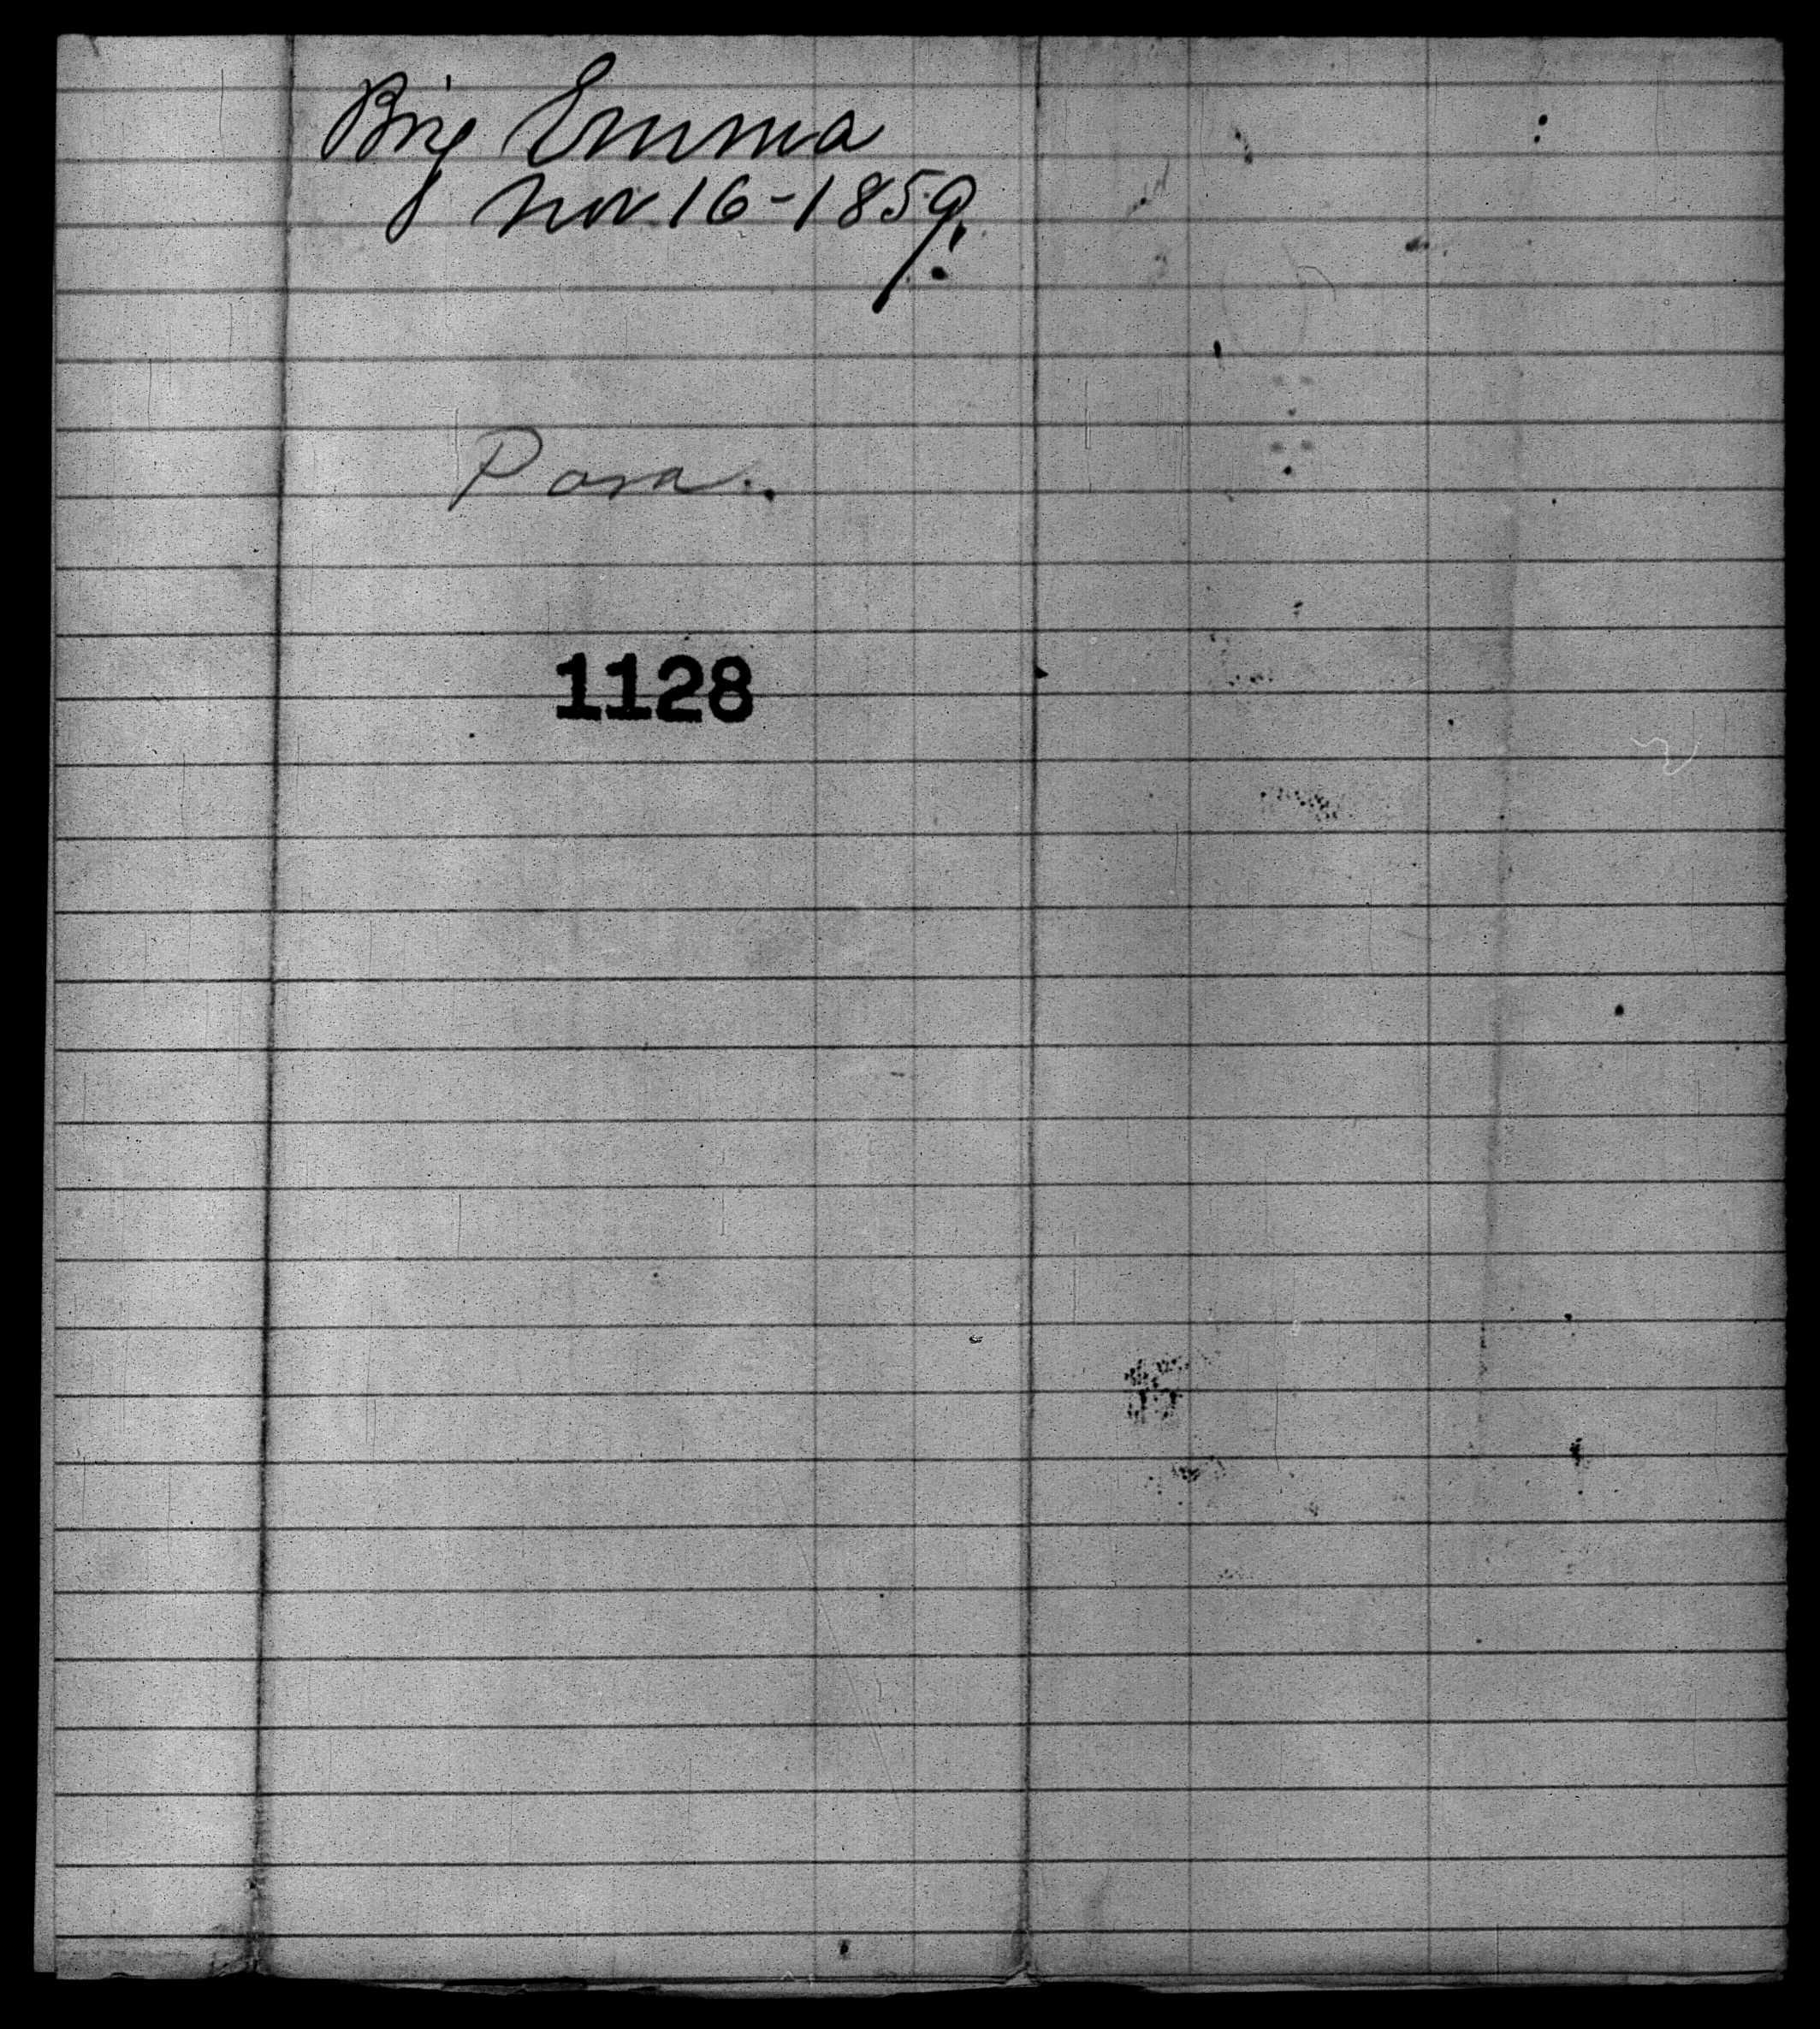 Brig Emma
Nov 16-1859.
Para.
1128